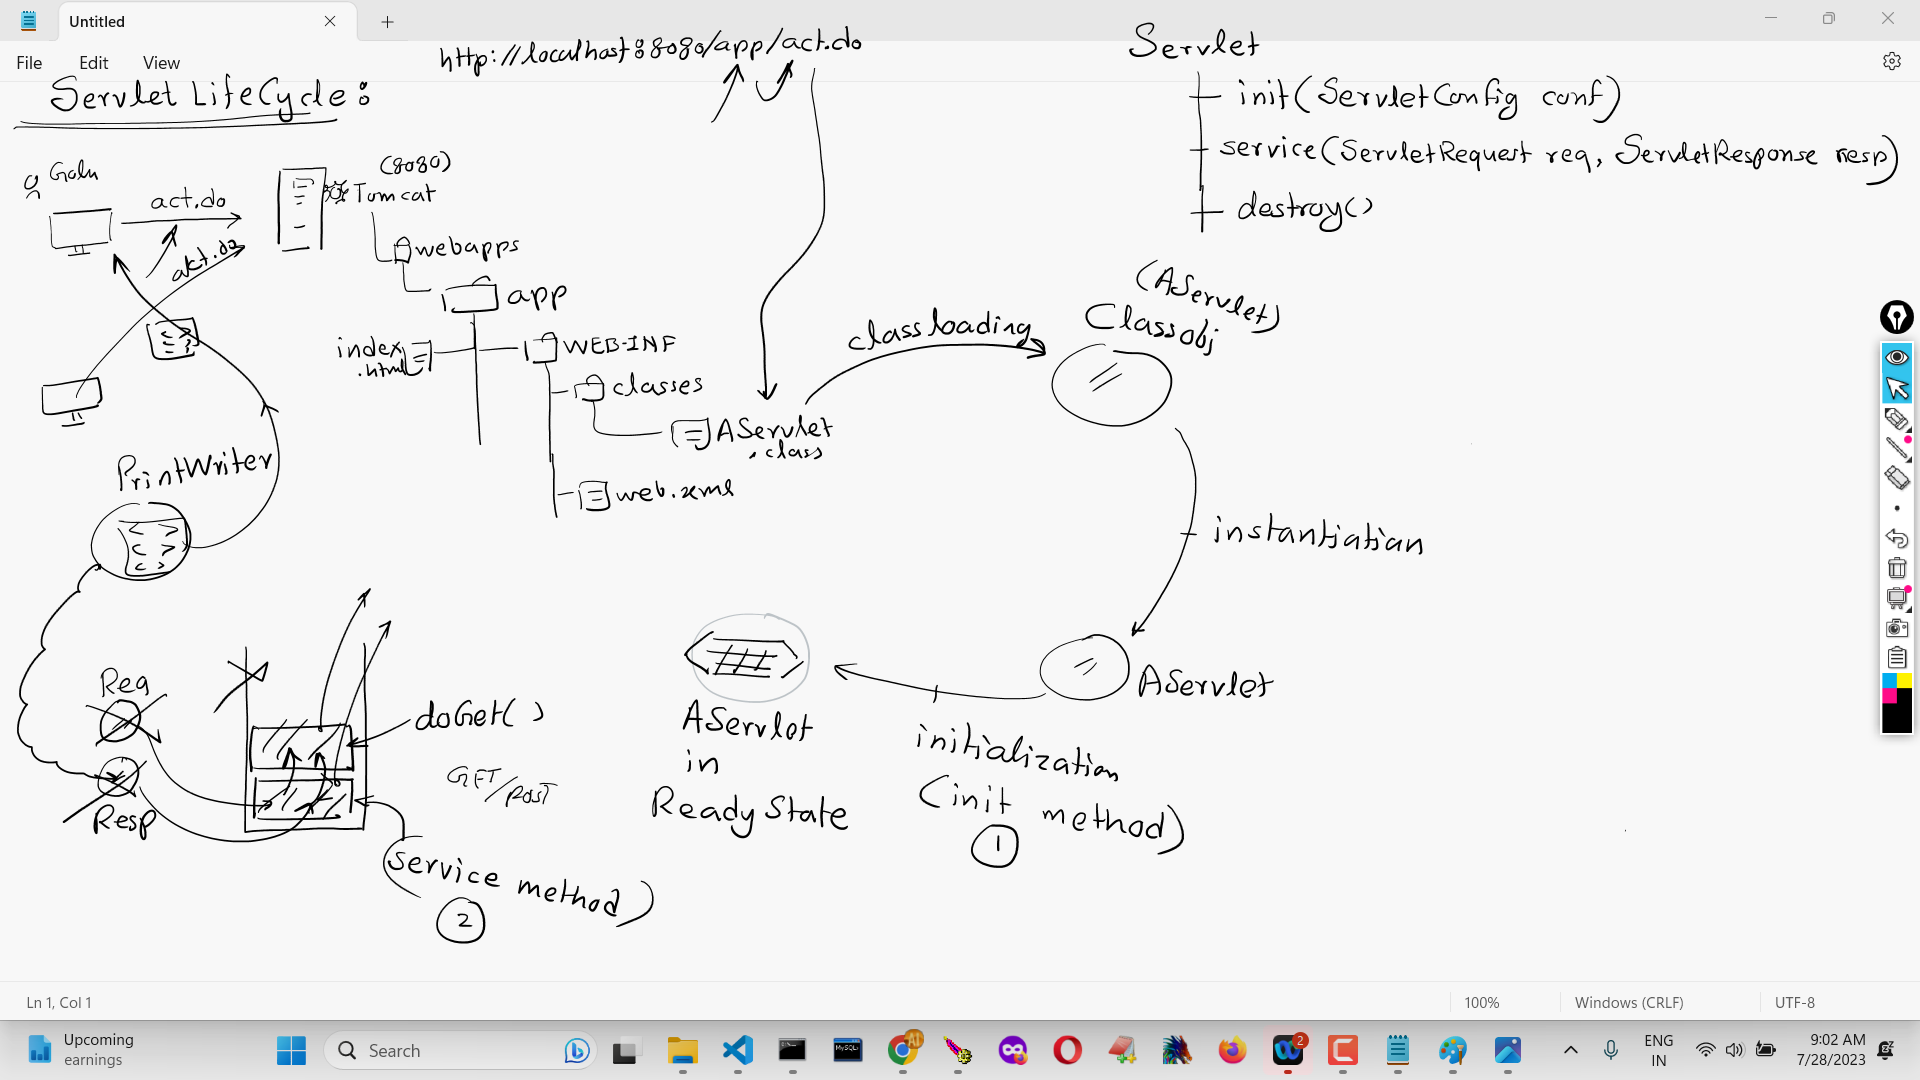 Untitled
File Edit View
http://localhost:8080/app/act.do
Servlet LifeCycle:
Servlet
init(ServletConfig conf)
service(ServletRequest req, ServletResponse resp)
destroy()
(8080)
Tomcat
act.do
act.do
webapps
app
index
.html
WEB-INF
classes
AServlet
.class
web.xml
classloading
(AServlet)
Classobj
instantiation
AServlet
initialization
(init method)
1
AServlet
in
Ready State
PrintWriter
Req
Resp
doGet()
GET/POST
(service method)
2
Ln 1, Col 1
100%
Windows (CRLF)
UTF-8
Upcoming
earnings
Search
2
ENG
IN
9:02 AM
7/28/2023